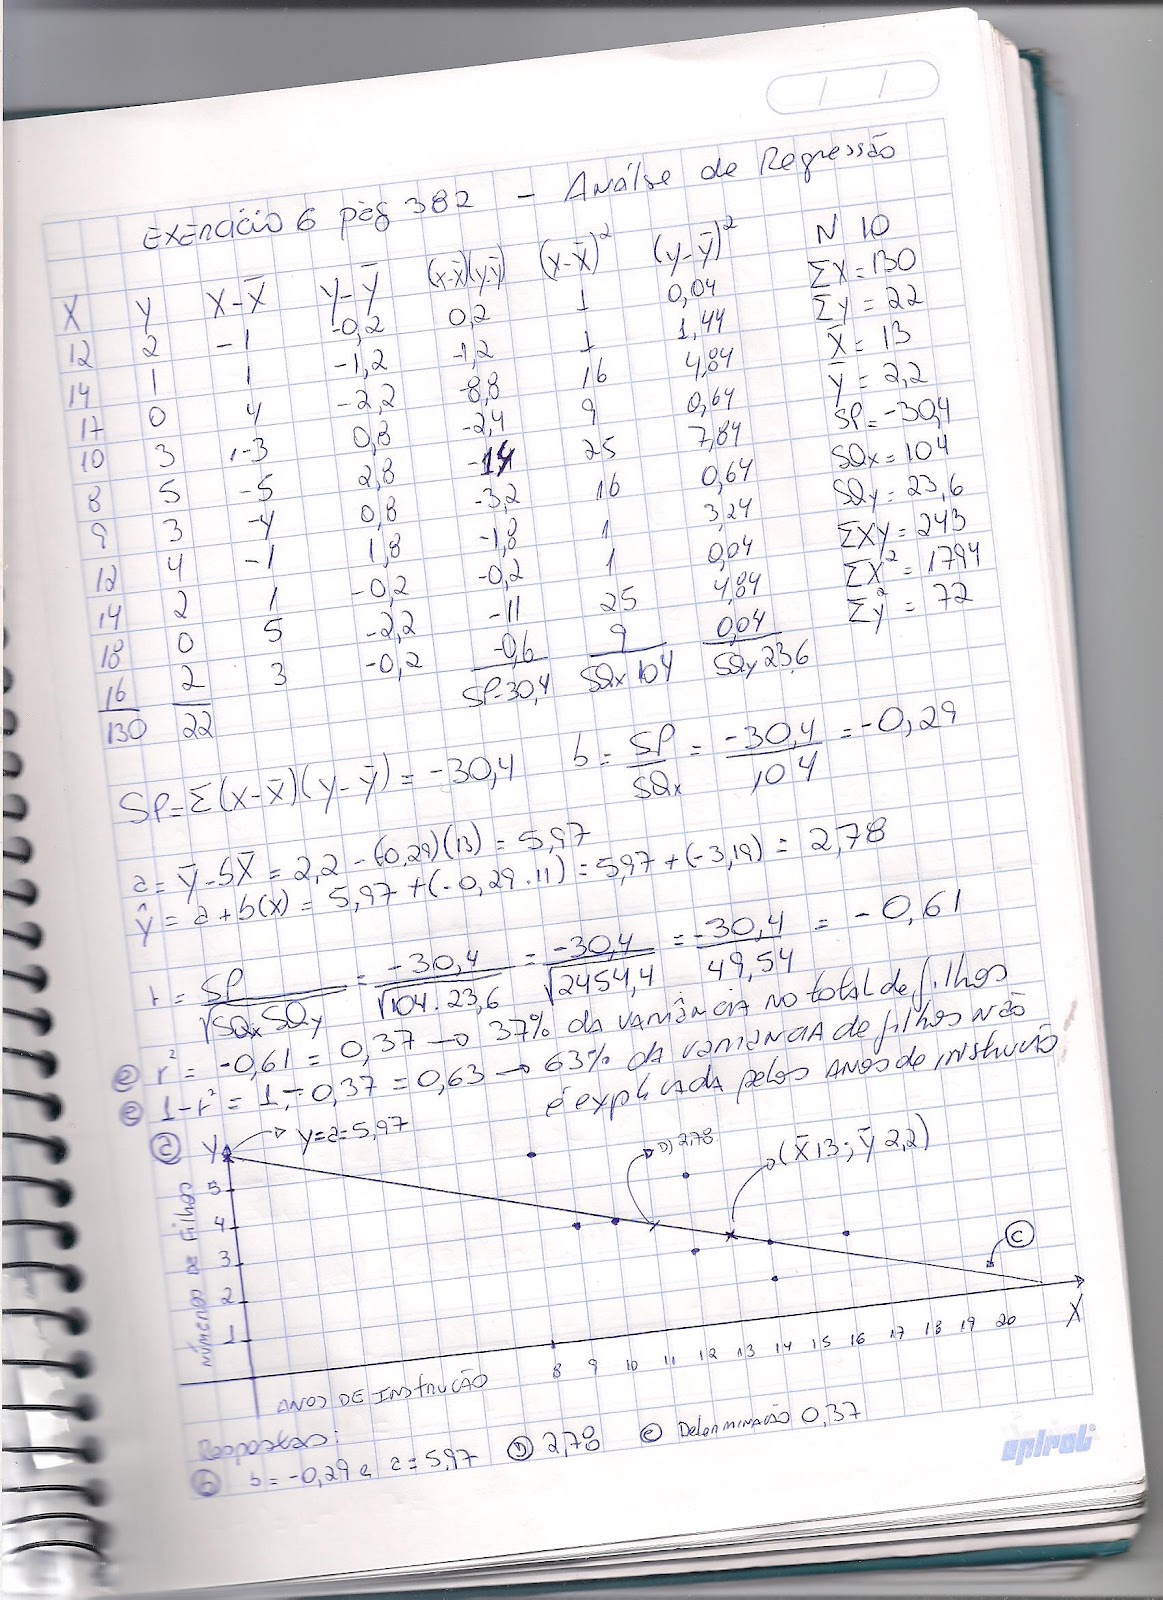 Exercício 6 pág 382 - Análise de Regressão
X Y X-X̄ Y-Ȳ (X-X̄)(Y-Ȳ) (X-X̄)² (Y-Ȳ)² N 10
12 2 -1 -0,2 0,2 1 0,04 ΣX=130
14 1 1 -1,2 -1,2 1 1,44 Σy=22
17 0 4 -2,2 -8,8 16 4,84 X̄=13
10 3 -3 0,8 -2,4 9 0,64 Ȳ=2,2
8 5 -5 2,8 -14 25 7,84 SP=-30,4
9 3 -4 0,8 -3,2 16 0,64 SQx=104
12 4 -1 1,8 -1,8 1 3,24 SQy=23,6
14 2 1 -0,2 -0,2 1 0,04 ΣXy=243
18 0 5 -2,2 -11 25 4,84 ΣX²=1794
16 2 3 -0,2 -0,6 9 0,04 Σy²=72
130 22 SP-30,4 SQx 104 SQy 23,6
SP=Σ(X-X̄)(y-ȳ)= -30,4 b= SP/SQx = -30,4/104 = -0,29
a= Ȳ-bX̄ = 2,2-(-0,29)(13)= 5,97
Ŷ = a+b(x) = 5,97+(-0,29.11)= 5,97+(-3,19) = 2,78
r = SP/√SQx SQy = -30,4/√104.23,6 = -30,4/√2454,4 = -30,4/49,54 = -0,61
e r² = -0,61 = 0,37 → 37% da variância no total de filhos
e 1-r² = 1-0,37 = 0,63 → 63% da variancia de filhos não
é explicada pelos anos de instrução
a Y y=a=5,97
D) 2,78
(X̄13; Ȳ2,2)
5
4
3
2
1
C
Número de filhos
8 9 10 11 12 13 14 15 16 17 18 19 20 X
Anos de instrução
Respostas:
b b= -0,29 e a=5,97 D 2,78 e Determinação 0,37
spiral